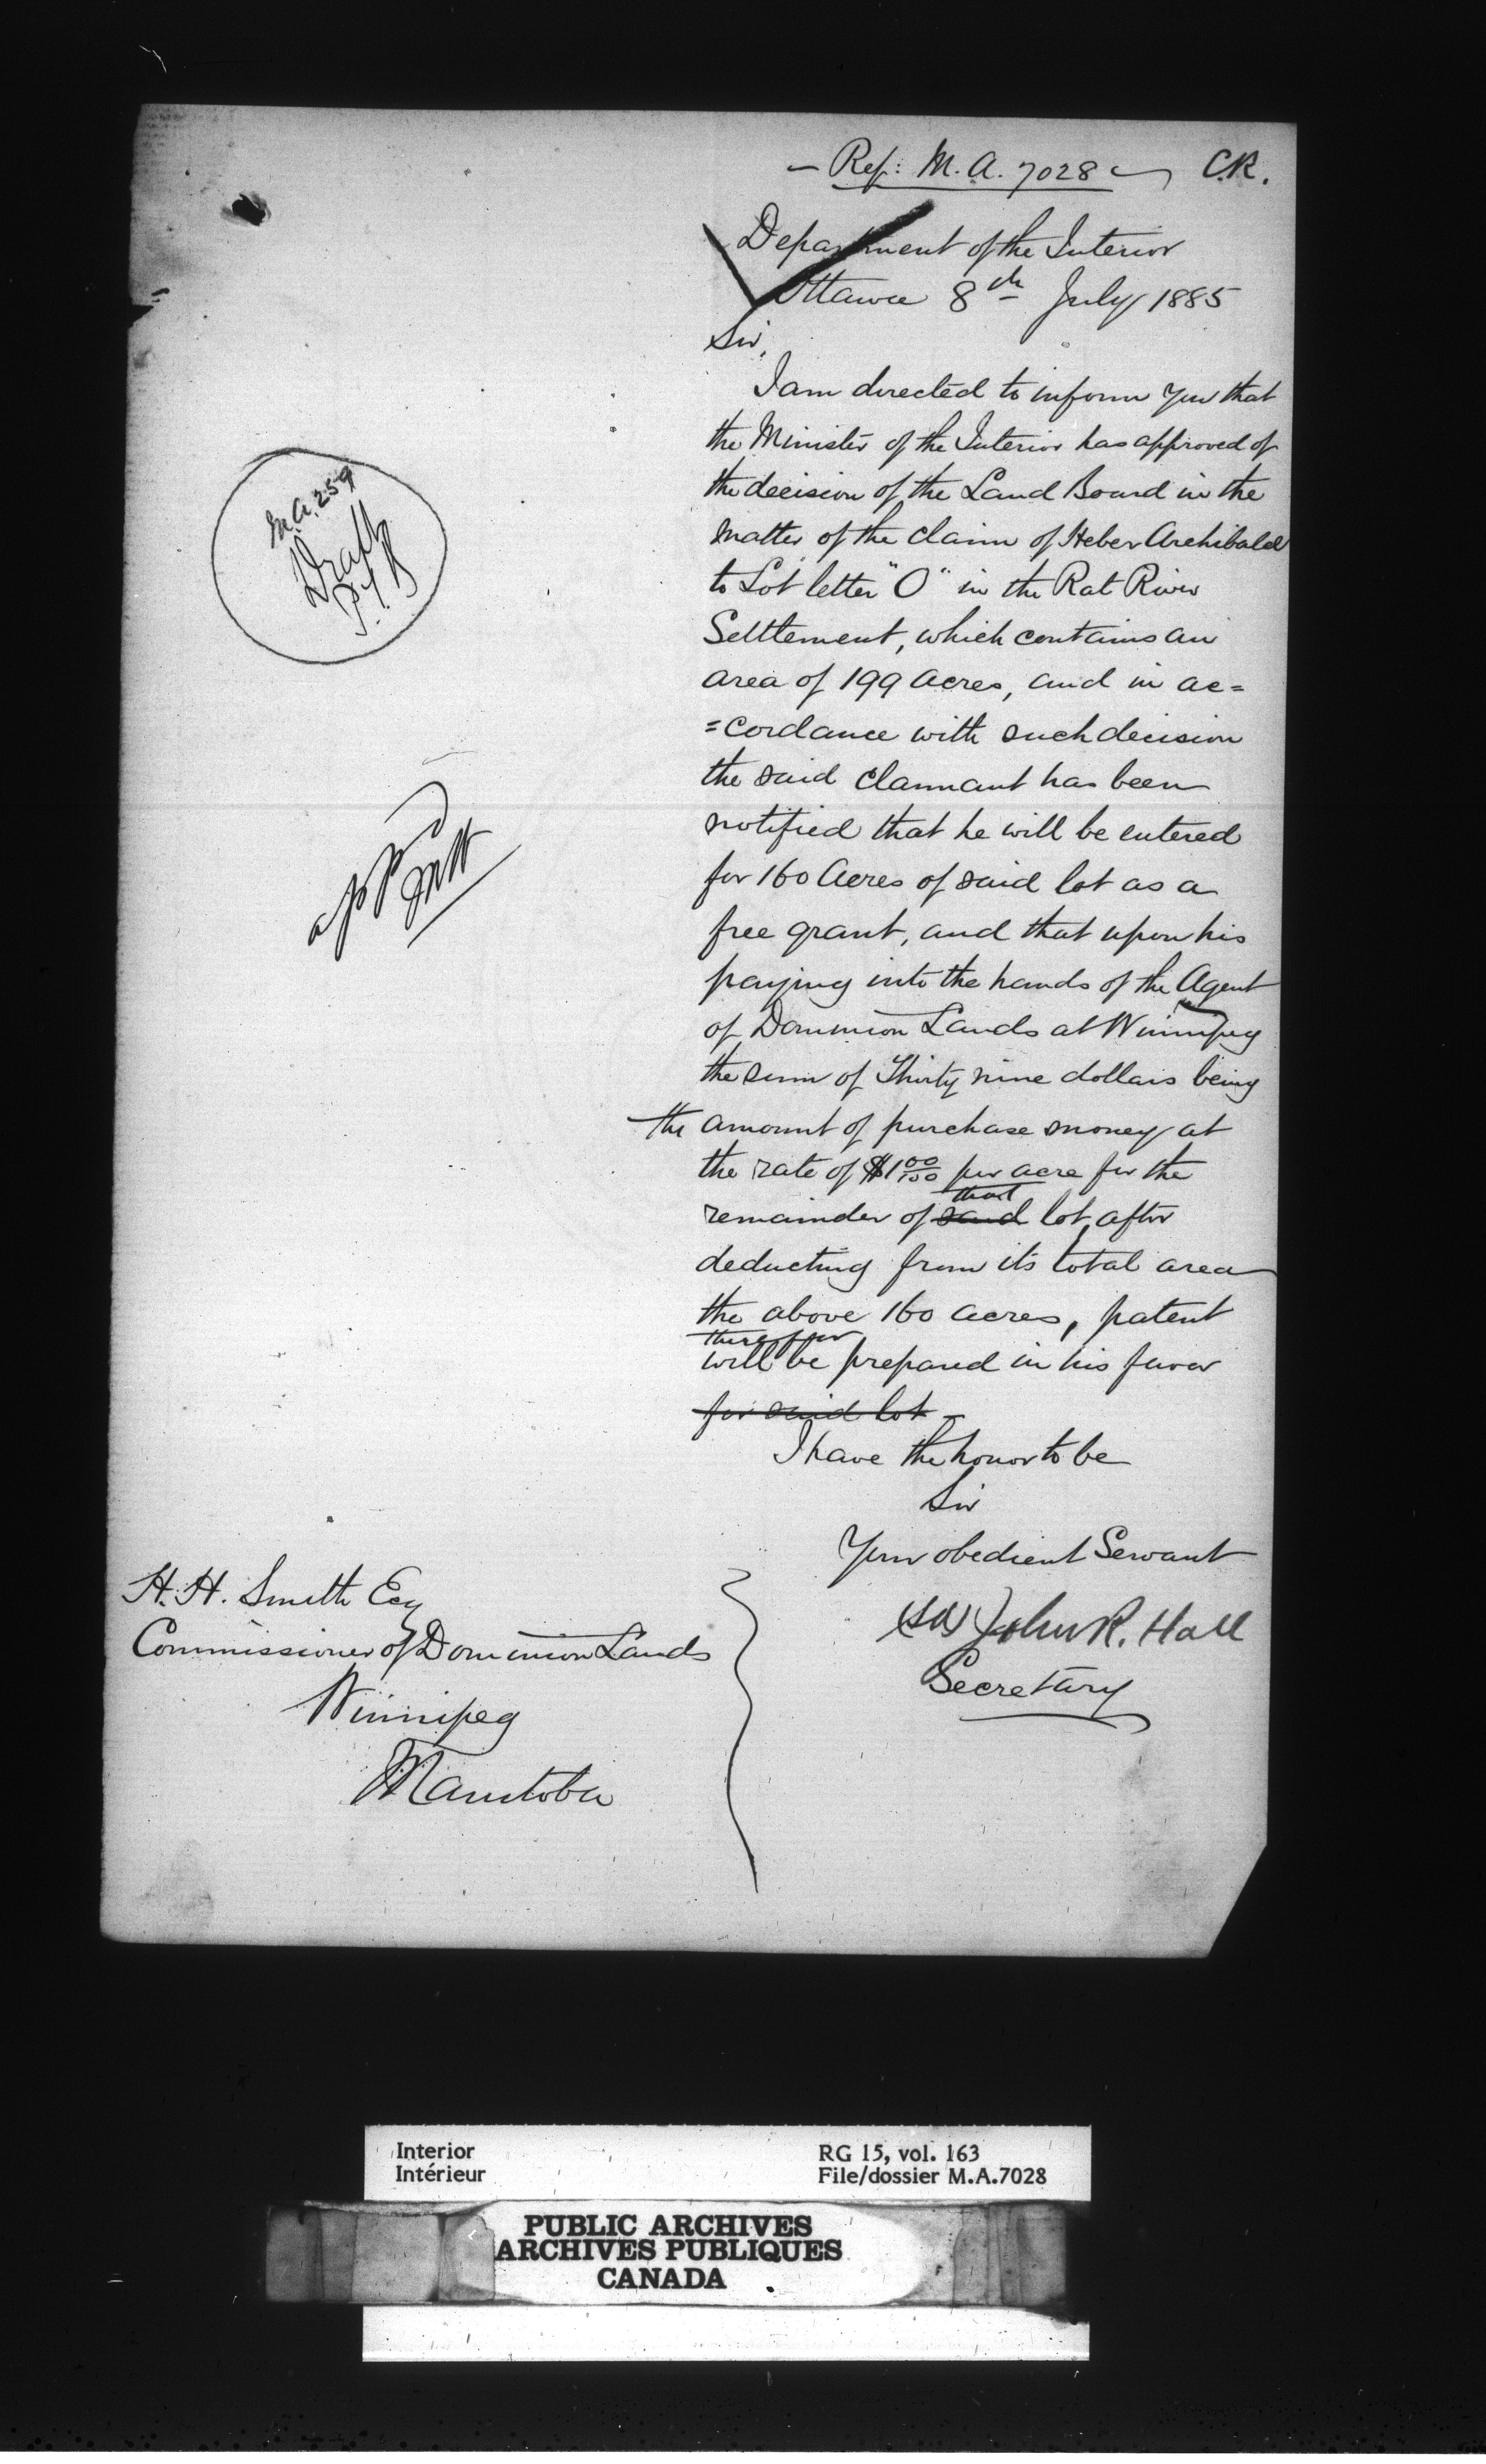 — Ref: M.A. 7028 — C.R.
Department of the Interior
Ottawa 8th July 1885
Sir,
I am directed to inform you that
the Minister of the Interior has approved of
the decision of the Land Board in the
matter of the claim of Heber Archibald
to Lot letter "O" in the Rat River
Settlement, which contains an
area of 199 acres, and in ac=
=cordance with such decision
the said claimant has been
notified that he will be entered
for 160 Acres of said lot as a
free grant, and that upon his
paying into the hands of the Agent
of Dominion Lands at Winnipeg
the sum of Thirty nine dollars being
the amount of purchase money at
the rate of $1 00/100 per acre for the
that
remainder of said lot, after
deducting from its total area
the above 160 acres, patent
therefor
will be prepared in his favor
for said lot —
I have the honor to be
Sir
Your obedient Servant
(Sd) John R. Hall
Secretary
H. H. Smith Esq
Commissioner of Dominion Lands
Winnipeg
Manitoba
M.A. 259
Draft
Interior
Intérieur
RG 15, vol. 163
File/dossier M.A.7028
PUBLIC ARCHIVES
ARCHIVES PUBLIQUES
CANADA